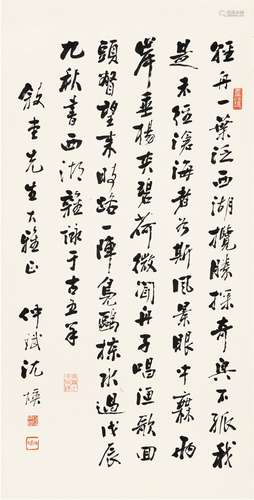 輕舟一葉泛西湖攬勝探奇興不孤我
是未經滄海者若斯風景眼中無兩
岸垂楊夾碧荷微聞舟子唱漁歌回
頭瞥望來時路一陣鳧鷗掠水過戊辰
九秋書西湖雜詠于古五羊
堂先生大雅正
仲 沈